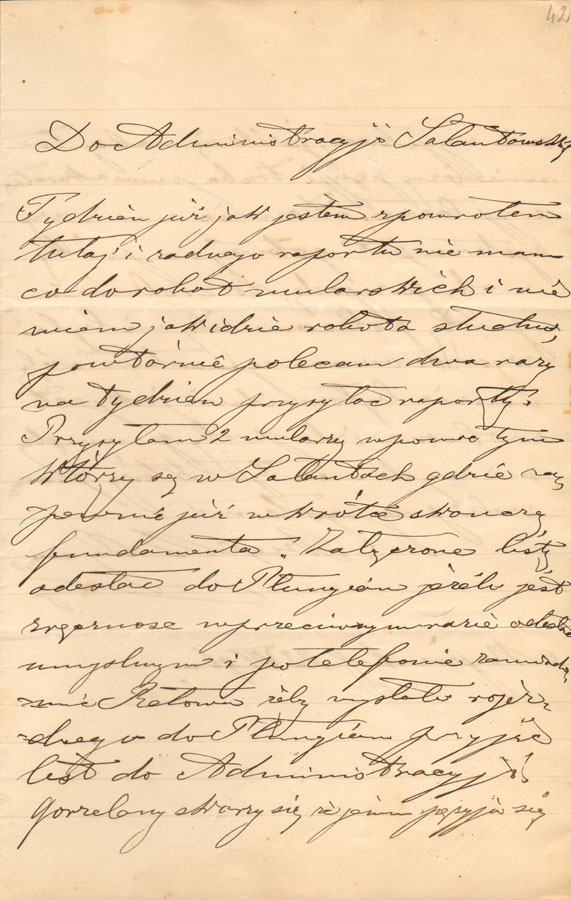 42
Do Administracyji Salantowskiej
Tydzien już jak jestem zpowrotem
tutaj i żadnego raportu nie mam
co do robot mularskich i nie
wiem jak idzie robota studni,
powtórnie polecam dwa razy
na tydzien przysyłac raporty.
Przysyłam 2 mularzy wpomoc tym
którzy są w Salantach gdzie za
pewnie już wkrótce skoncza
fundamenta. Załączone listy
odesłac do Płungian jeżeli jest
zręcznosc wprzeciwnym razie odesłac
umyslnym i potelefonie zawiado
mic Retowo żeby wysłali rozjez
dnego do Płungian przyjąc
list do Administracyji,
gorzelany skarzy się że jemu pęsyja się